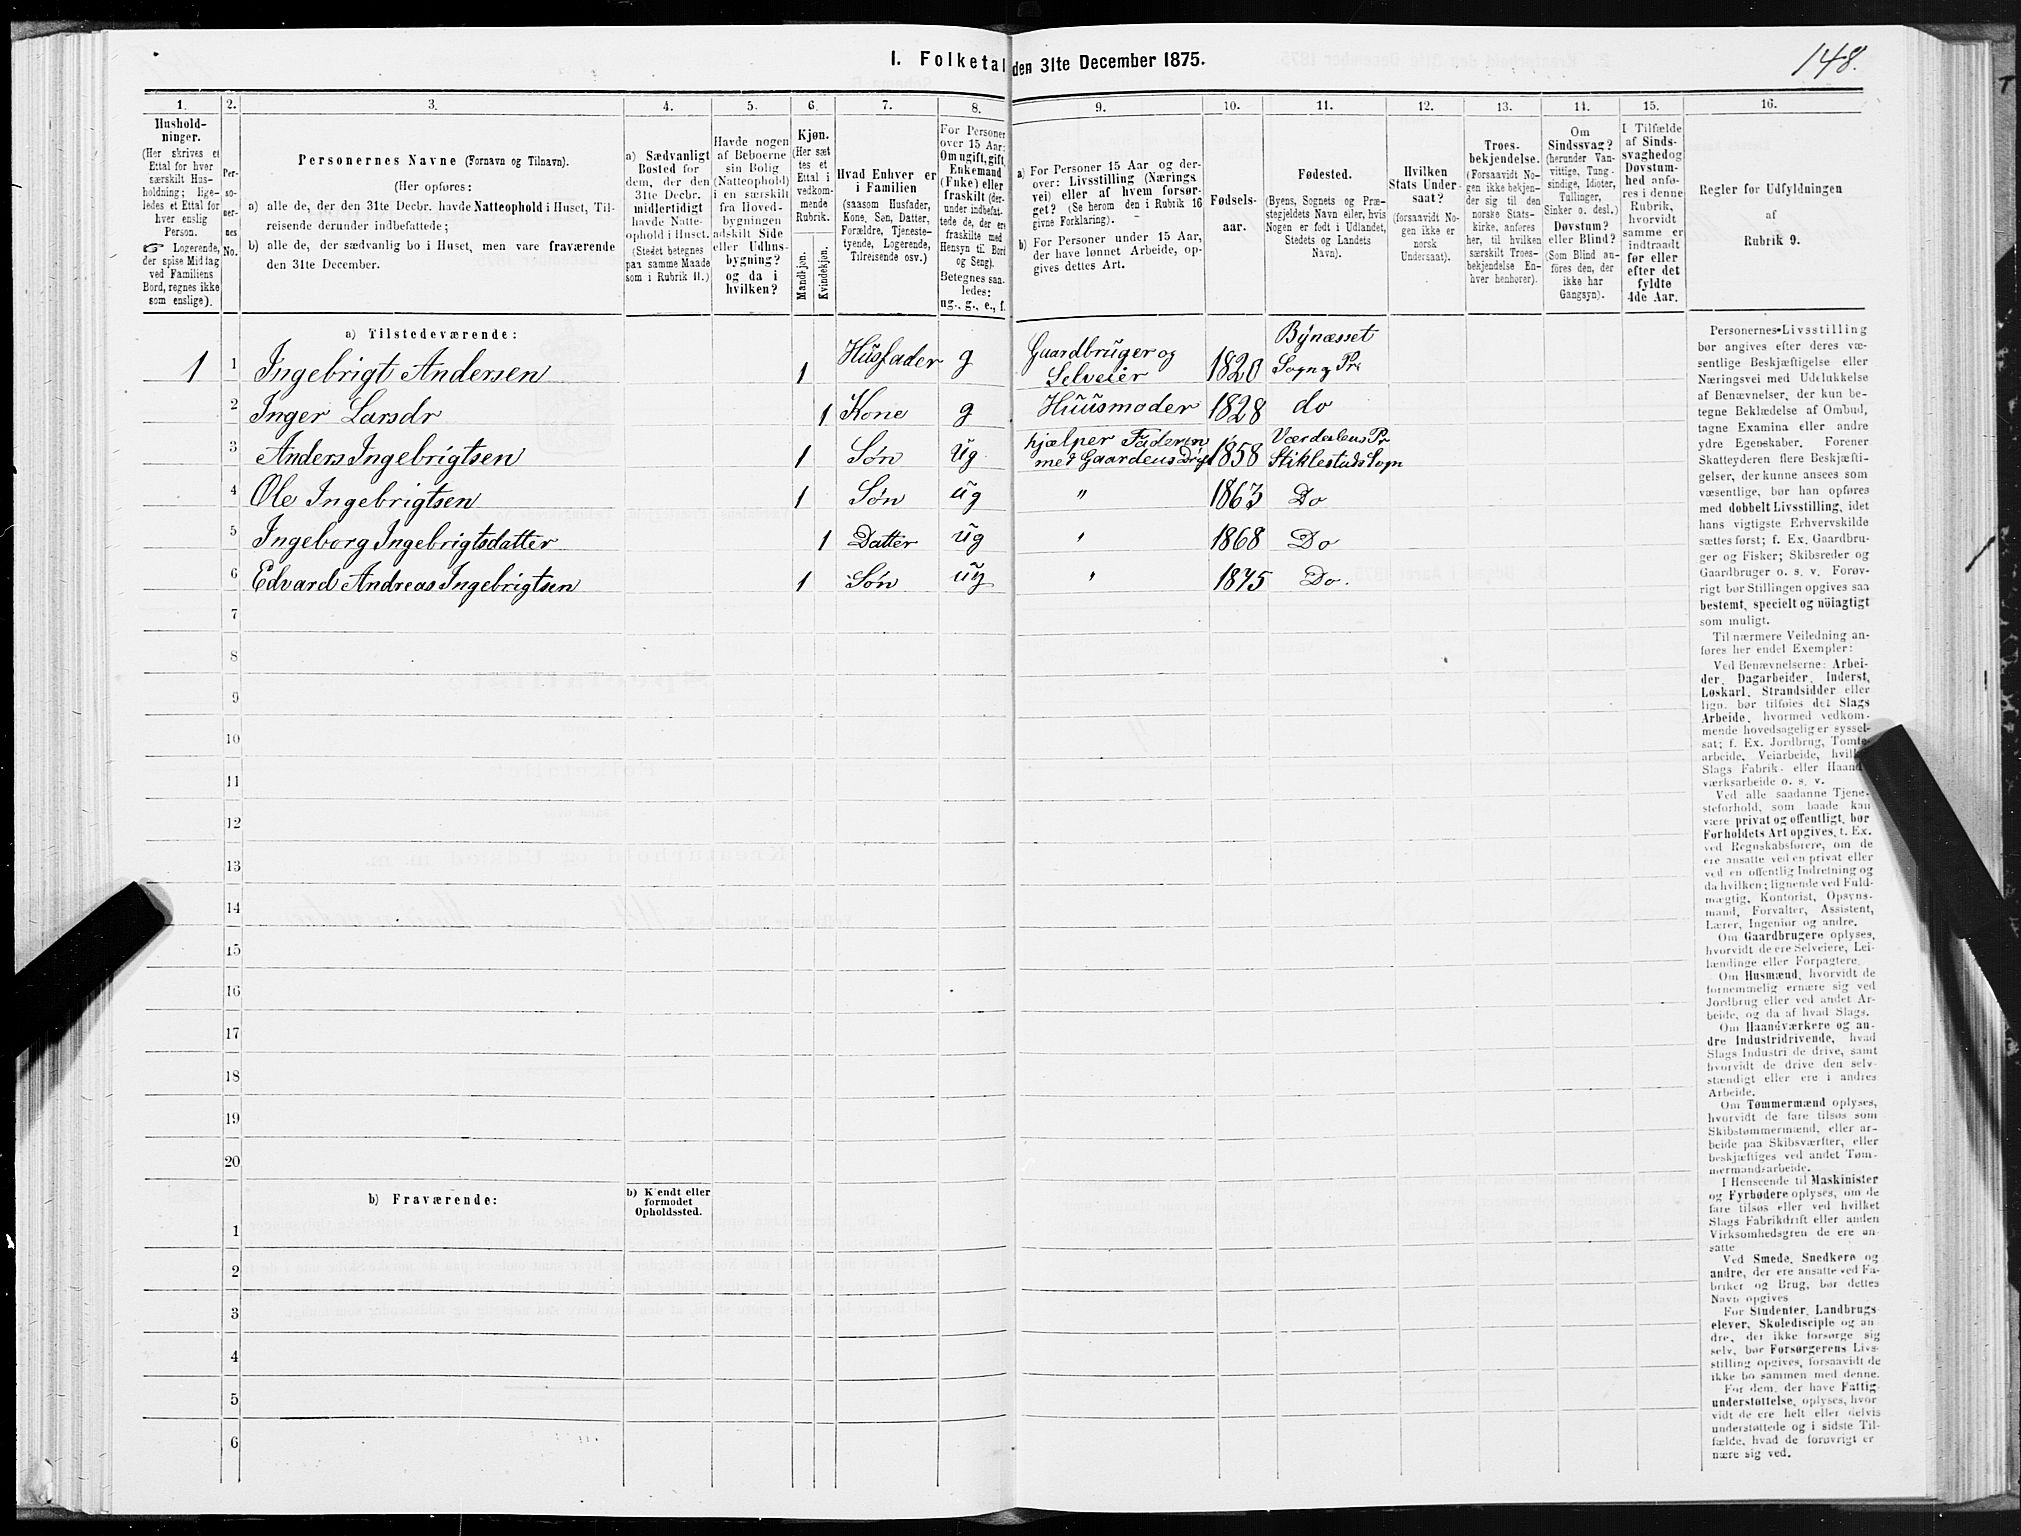 I. Folketal den 31te December 1875.
148.
1. 2. 3. 4. 5. 6. 7. 8. 9. 10. 11. 12. 13. 14. 15. 16.
Hushold-
ninger.
(Her skrives et
Ettal for hver
særskilt Hus-
holdning; lige-
ledes et Ettal for
hver enslig
Person.
☞ Logerende,
der spise Middag
ved Familiens
Bord, regnes ikke
som enslige).
Per-
so-
ner-
nes
No.
Personernes Navne (Fornavn og Tilnavn).
(Her opføres:
a) alle de, der den 31te Decbr. havde Natteophold i Huset, Til-
reisende derunder indbefattede;
b) alle de, der sædvanlig bo i Huset, men vare fraværende
den 31te December.
a) Sædvanligt
Bosted for
dem, der den
31te Decbr.
midlertidigt
havde Natte-
ophold i Huset.
(Stedet betegnes
paa samme Maade
som i Rubrik II.)
Havde nogen
af Beboerne
sin Bolig
(Natteophold)
i en særskilt
fra Hoved-
bygningen
adskilt Side
eller Udhus-
bygning?
og da i
hvilken?
Kjøn.
(Her sæt
tes et
Ettal i
vedkom-
mende
Rubrik.
Mandkjøn.
Kvindekjøn.
Hvad Enhver er
i Familien
(saasom Husfader,
Kone, Søn, Datter,
Forældre, Tjeneste-
tyende, Logerende,
Tilreisende osv.)
For Personer
over 15 Aar:
Om ugift, gift,
Enkemand
(Enke) eller
fraskilt (der-
under indbefat-
tede de, der ere
fraskilte med
Hensyn til Bord
og Seng).
Betegnes saa-
ledes:
ug., g., e., f.
a) For Personer 15 Aar og der-
over: Livsstilling (Nærings
vei) eller af hvem forsør-
get? (Se herom den i Rubrik 16
givne Forklaring).
b) For Personer under 15 Aar,
der have lønnet Arbeide, op-
gives dettes Art.
Fødsels-
aar.
Fødested.
(Byens, Sognets og Præ-
stegjeldets Navn eller, hvis
Nogen er født i Udlandet,
Stedets og Landets
Navn).
Hvilken
Stats Under-
saat?
(forsaavidt No-
gen ikke er
norsk
Undersaat).
Troes-
bekjendelse.
(Forsaavidt No-
gen ikke bekjen-
der sig til den
norske Stats-
kirke, anføres
her, til hvilken
særskilt Troes-
bekjendelse En-
hver henhører).
Om
Sindssvag?
(herunder Van-
vittige, Tung-
sindige, Idioter,
Tullinger,
Sinker o. desl.)
Døvstum?
eller Blind?
(Som Blind an-
føres den, der
ikke har
Gangsyn).
I Tilfælde
af Sinds-
svaghed og
Døvstum-
hed anfø-
res i denne
Rubrik,
hvorvidt
samme er
indtraadt
før eller
efter det
fyldte
4de Aar.
Regler for Udfyldningen
af
Rubrik 9.
a) Tilstedeværende:
1 1 Ingebrigt Andersen 1 Husfader g Gaardbruger og Selveier 1820 Bynæsset Sogn og Pr
2 Inger Larsdr 1 Kone g Huusmoder 1828 do
3 Anders Ingebrigtsen 1 Søn ug hjælper Faderen med Gaardens Drift 1858 Værdalens Pr Stiklestad Sogn
4 Ole Ingebrigtsen 1 Søn ug " 1863 Do
5 Ingeborg Ingebrigtsdatter 1 Datter ug " 1868 Do
6 Edvard Andreas Ingebrigtsen 1 Søn ug " 1875 Do.
7
8
9
10
11
12
13
14
15
16
17
18
19
20
b) Fraværende:
b) Kjendt eller
formodet
Opholdssted.
1
2
3
4
5
6
Personernes Livsstilling
bør angives efter deres væ-
sentlige Beskjæftigelse eller
Næringsvei med Udelukkelse
af Benævnelser, der kun be-
tegne Beklædelse af Ombud,
tagne Examina eller andre
ydre Egenskaber. Forener
Skatteyderen flere Beskjæfti-
gelser, der kunne ansees som
væsentlige, bør han opføres
med dobbelt Livsstilling, idet
hans vigtigste Erhvervskilde
sættes først; f. Ex. Gaardbru-
ger og Fisker; Skibsreder og
Gaardbruger o. s. v. Forøv-
rigt bør Stillingen opgives saa
bestemt, specielt og nöiagtigt
som muligt.
Til nærmere Veiledning an-
føres her endel Exempler:
Ved Benævnelserne: Arbei-
der, Dagarbeider, Inderst,
Løskarl, Strandsidder eller
lign. bør tilføies det Slags
Arbeide, hvormed vedkom-
mende hovedsagelig er syssel-
sat; f. Ex. Jordbrug, Tomte-
arbeide, Veiarbeide, hvilket
Slags Fabrik- eller Haand-
værksarbeide o. s. v.
Ved alle saadanne Tjene-
steforhold, som baade kan
være privat og offentligt, bør
Forholdets Art opgives, t. Ex.
ved Regnskabsførere, om de
ere ansatte ved en privat eller
ved en offentlig Indretning og
da hvilken; lignende ved Fuld-
mægtig, Kontorist, Opsyns-
mand, Forvalter, Assistent,
Lærer, Ingeniør og andre.
Om Gaardbrugere oplyses,
hvorvidt de ere Selveiere, Lei-
lændinge eller Forpagtere.
Om Husmænd, hvorvidt de
fornemmelig ernære sig ved
Jordbrug eller ved andet Ar-
beide, og da af hvad Slags.
Om Haandværkere og an-
dre Industridrivende, hvad
Slags Industri de drive, samt
hvorvidt de drive den selv-
stændigt eller ere i andres
Arbeide.
Om Tømmermænd oplyses,
hvorvidt de fare tilsøs som
Skibstømmermænd, eller ar-
beide paa Skibsværfter, eller
beskjæftiges ved andet Tøm-
mermandsarbeide.
I Henseende til Maskinister
og Fyrbødere oplyses, om de
fare tilsøs eller ved hvilket
Slags Fabrikdrift eller anden
Virksomhedsgren de ere an-
satte
Ved Smede, Snedkere og
andre, der ere ansatte ved Fa-
briker og Brug, bør dettes
Navn opgives
For Studenter, Landbrugs-
elever, Skoledisciple og an
dre, der ikke forsørge sig
selv, bør Forsørgerens Livs-
stilling opgives, forsaavidt de
ikke bo sammen med denne.
For dem, der have Fattig-
understøttelse, oplyses, hvor-
vidt de ere helt eller delvis
understøttede og i sidste Til-
fælde, hvad de forøvrigt er
nære sig ved.